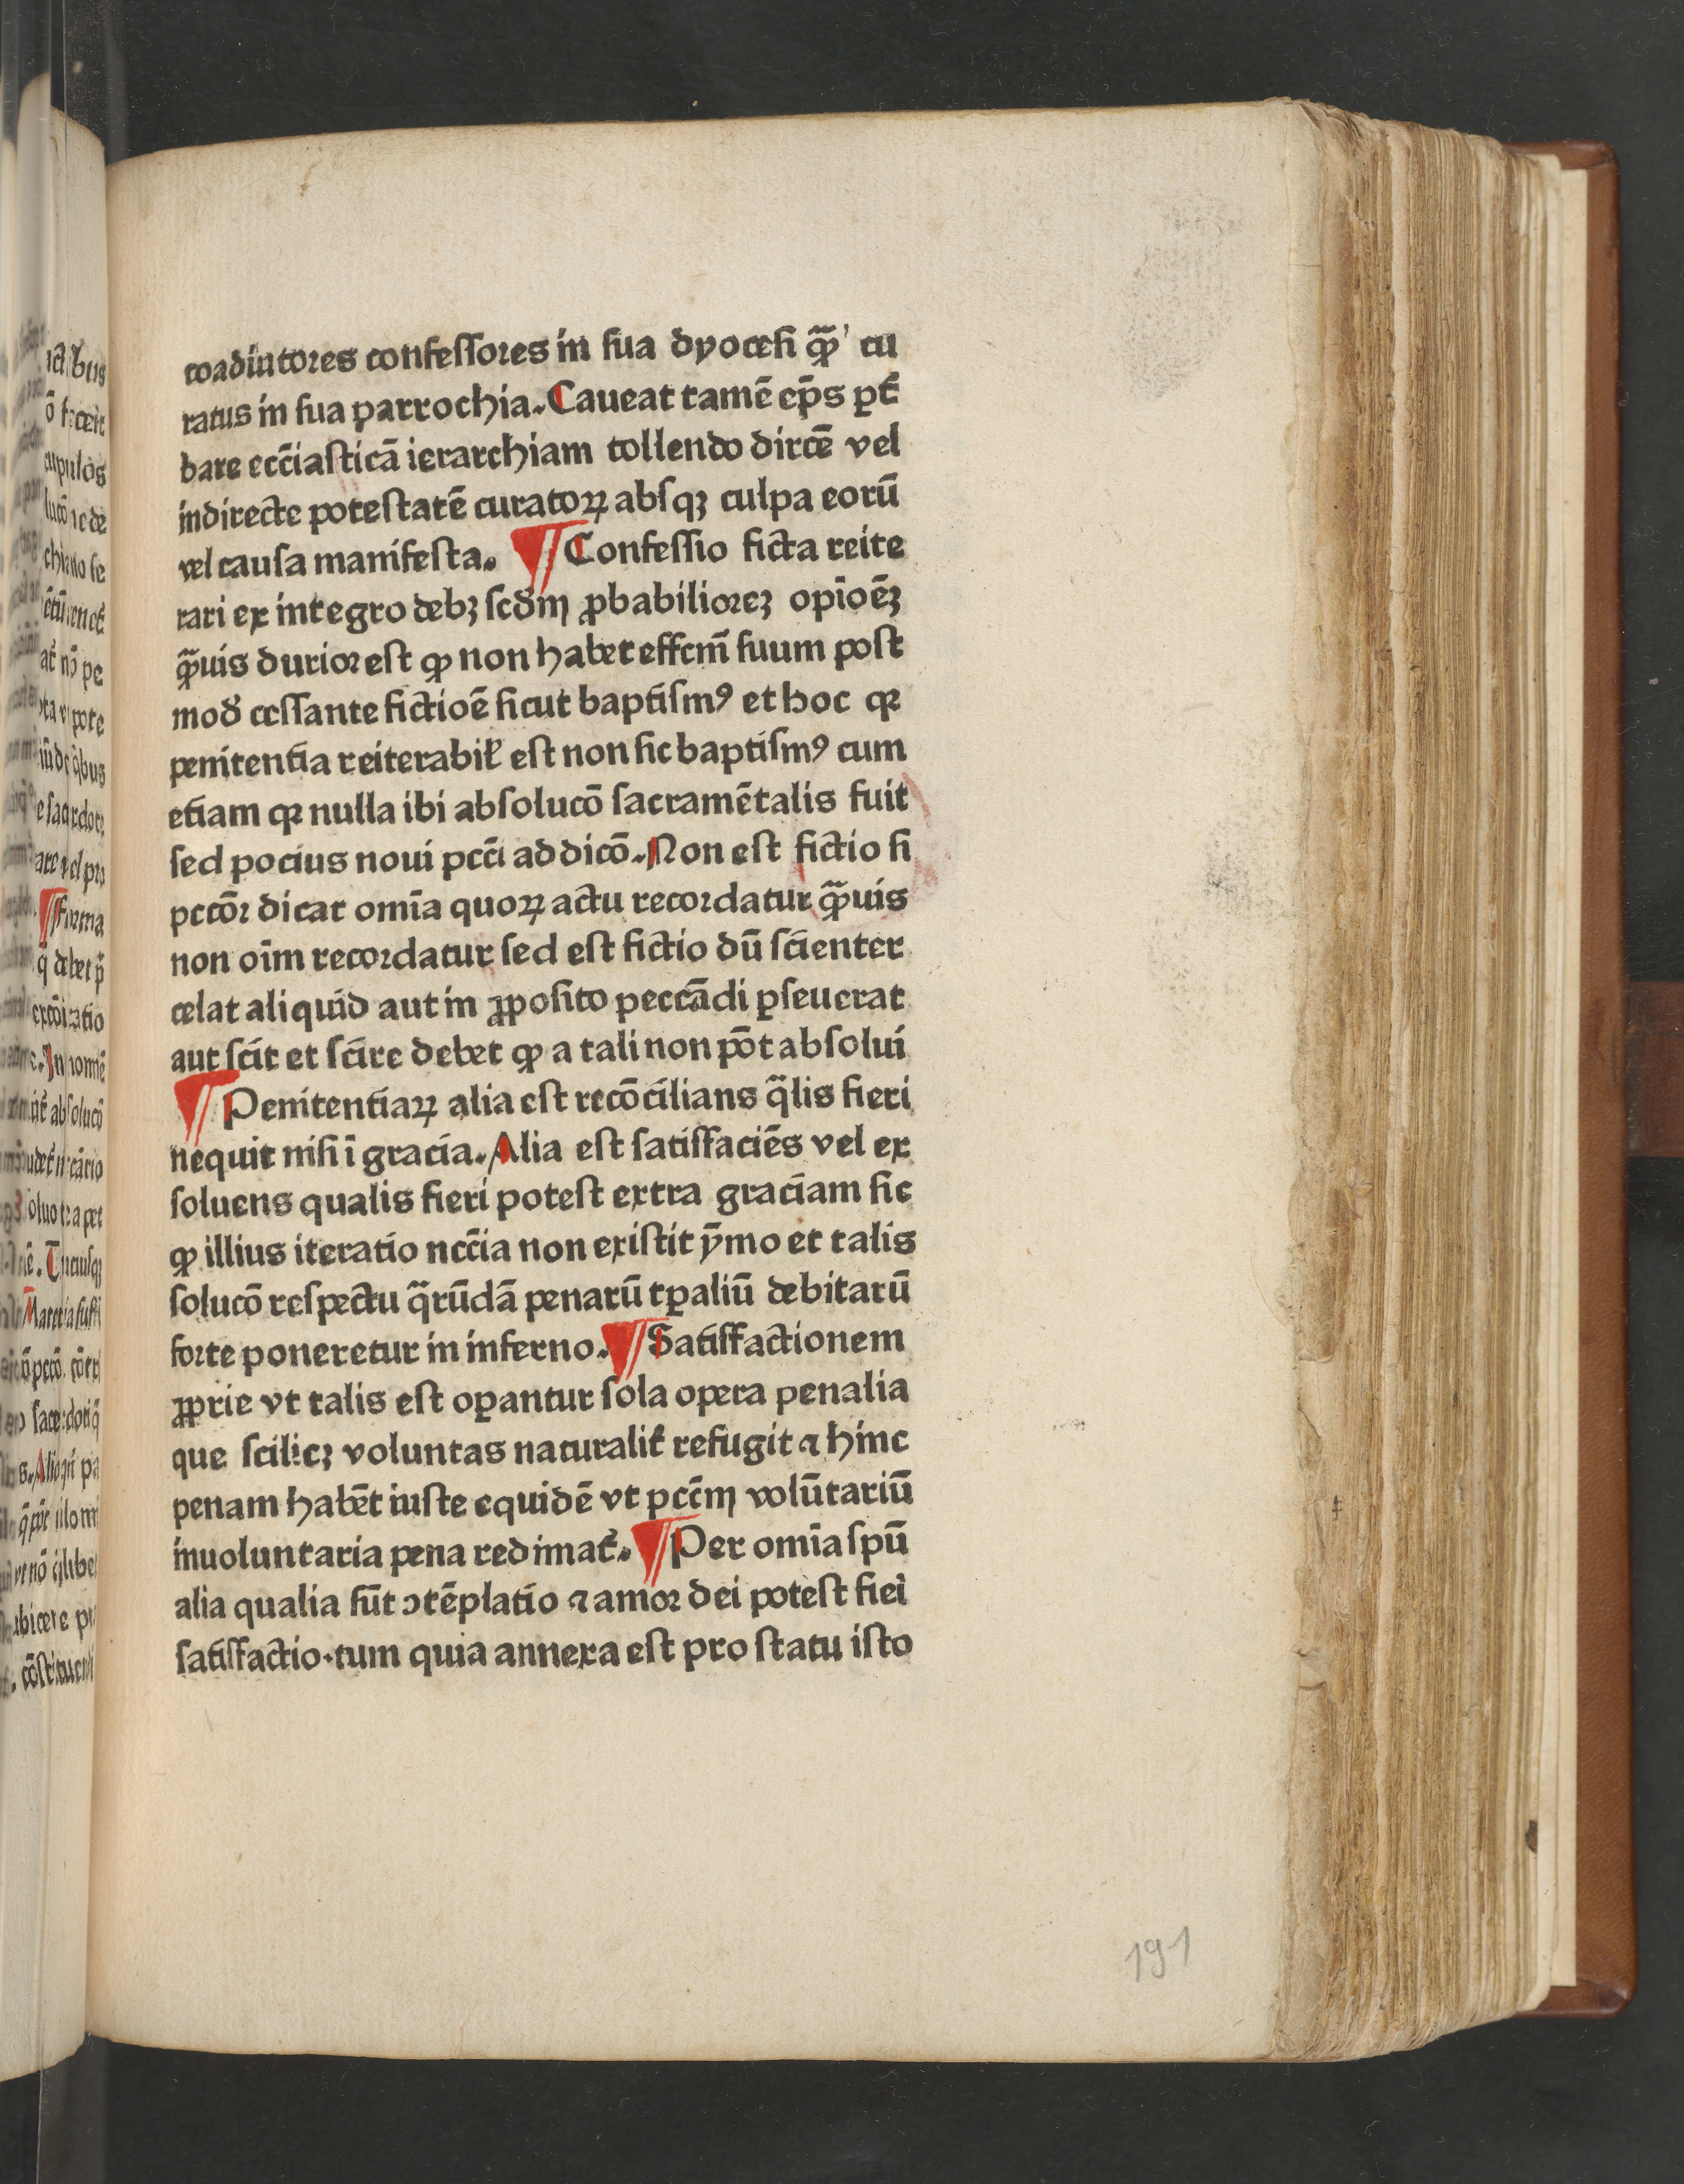 coadiutores confessores in sua dyocesi q̄ꝫ cu
ratus in sua parrochia. Caueat tamē ep̄s ꝑt̄
bare ecc̄iasticā ierarchiam tollendo dirc̄e vel
indirecte potestatē curatoꝝ absqꝫ culpa eorū
vel causa manifesta. ¶ Confessio ficta reite
rari ex integro debꝫ scd̄m ꝓbabilioreꝫ opīoēꝫ
q̄ꝫuis durior est ꝙ non habet effcm̄ suum post
mod̄ cessante fictioē sicut baptismꝰ et hoc qꝛ
penitentia reiterabil̄ est non sic baptismꝰ cum
etiam qꝛ nulla ibi absolucō sacramētalis fuit
sed pocius noui pcc̄i addicō. Non est fictio si
pctōr dicat omīa quoꝝ actu recordatur q̄ꝫuis
non oīm recordatur sed est fictio dū scienter
celat aliquid aut in ꝓposito peccādi ꝑseuerat
aut scit et scire debet ꝙ a tali non pōt absolui
¶ Penitentiaꝝ alia est recōcilians q̄lis fieri
nequit nisi ī gracia. Alia est satisfaciēs vel ex
soluens qualis fieri potest extra graciam sic
ꝙ illius iteratio ncc̄ia non existit ȳmo et talis
solucō respectu q̄rūdā penarū tꝑaliū debitarū
forte poneretur in inferno. ¶ Satisfactionem
ꝓprie vt talis est oꝑantur sola opera penalia
que scilicꝫ voluntas naturalit̄ refugit ⁊ hinc
penam habēt iuste equidē vt pcc̄m volūtariū
inuoluntaria pena redimat̄. ¶ Per omīa spū
alia qualia sūt ↄtēplatio ⁊ amor dei potest fieri
satisfactio. tum quia annexa est pro statu isto
191